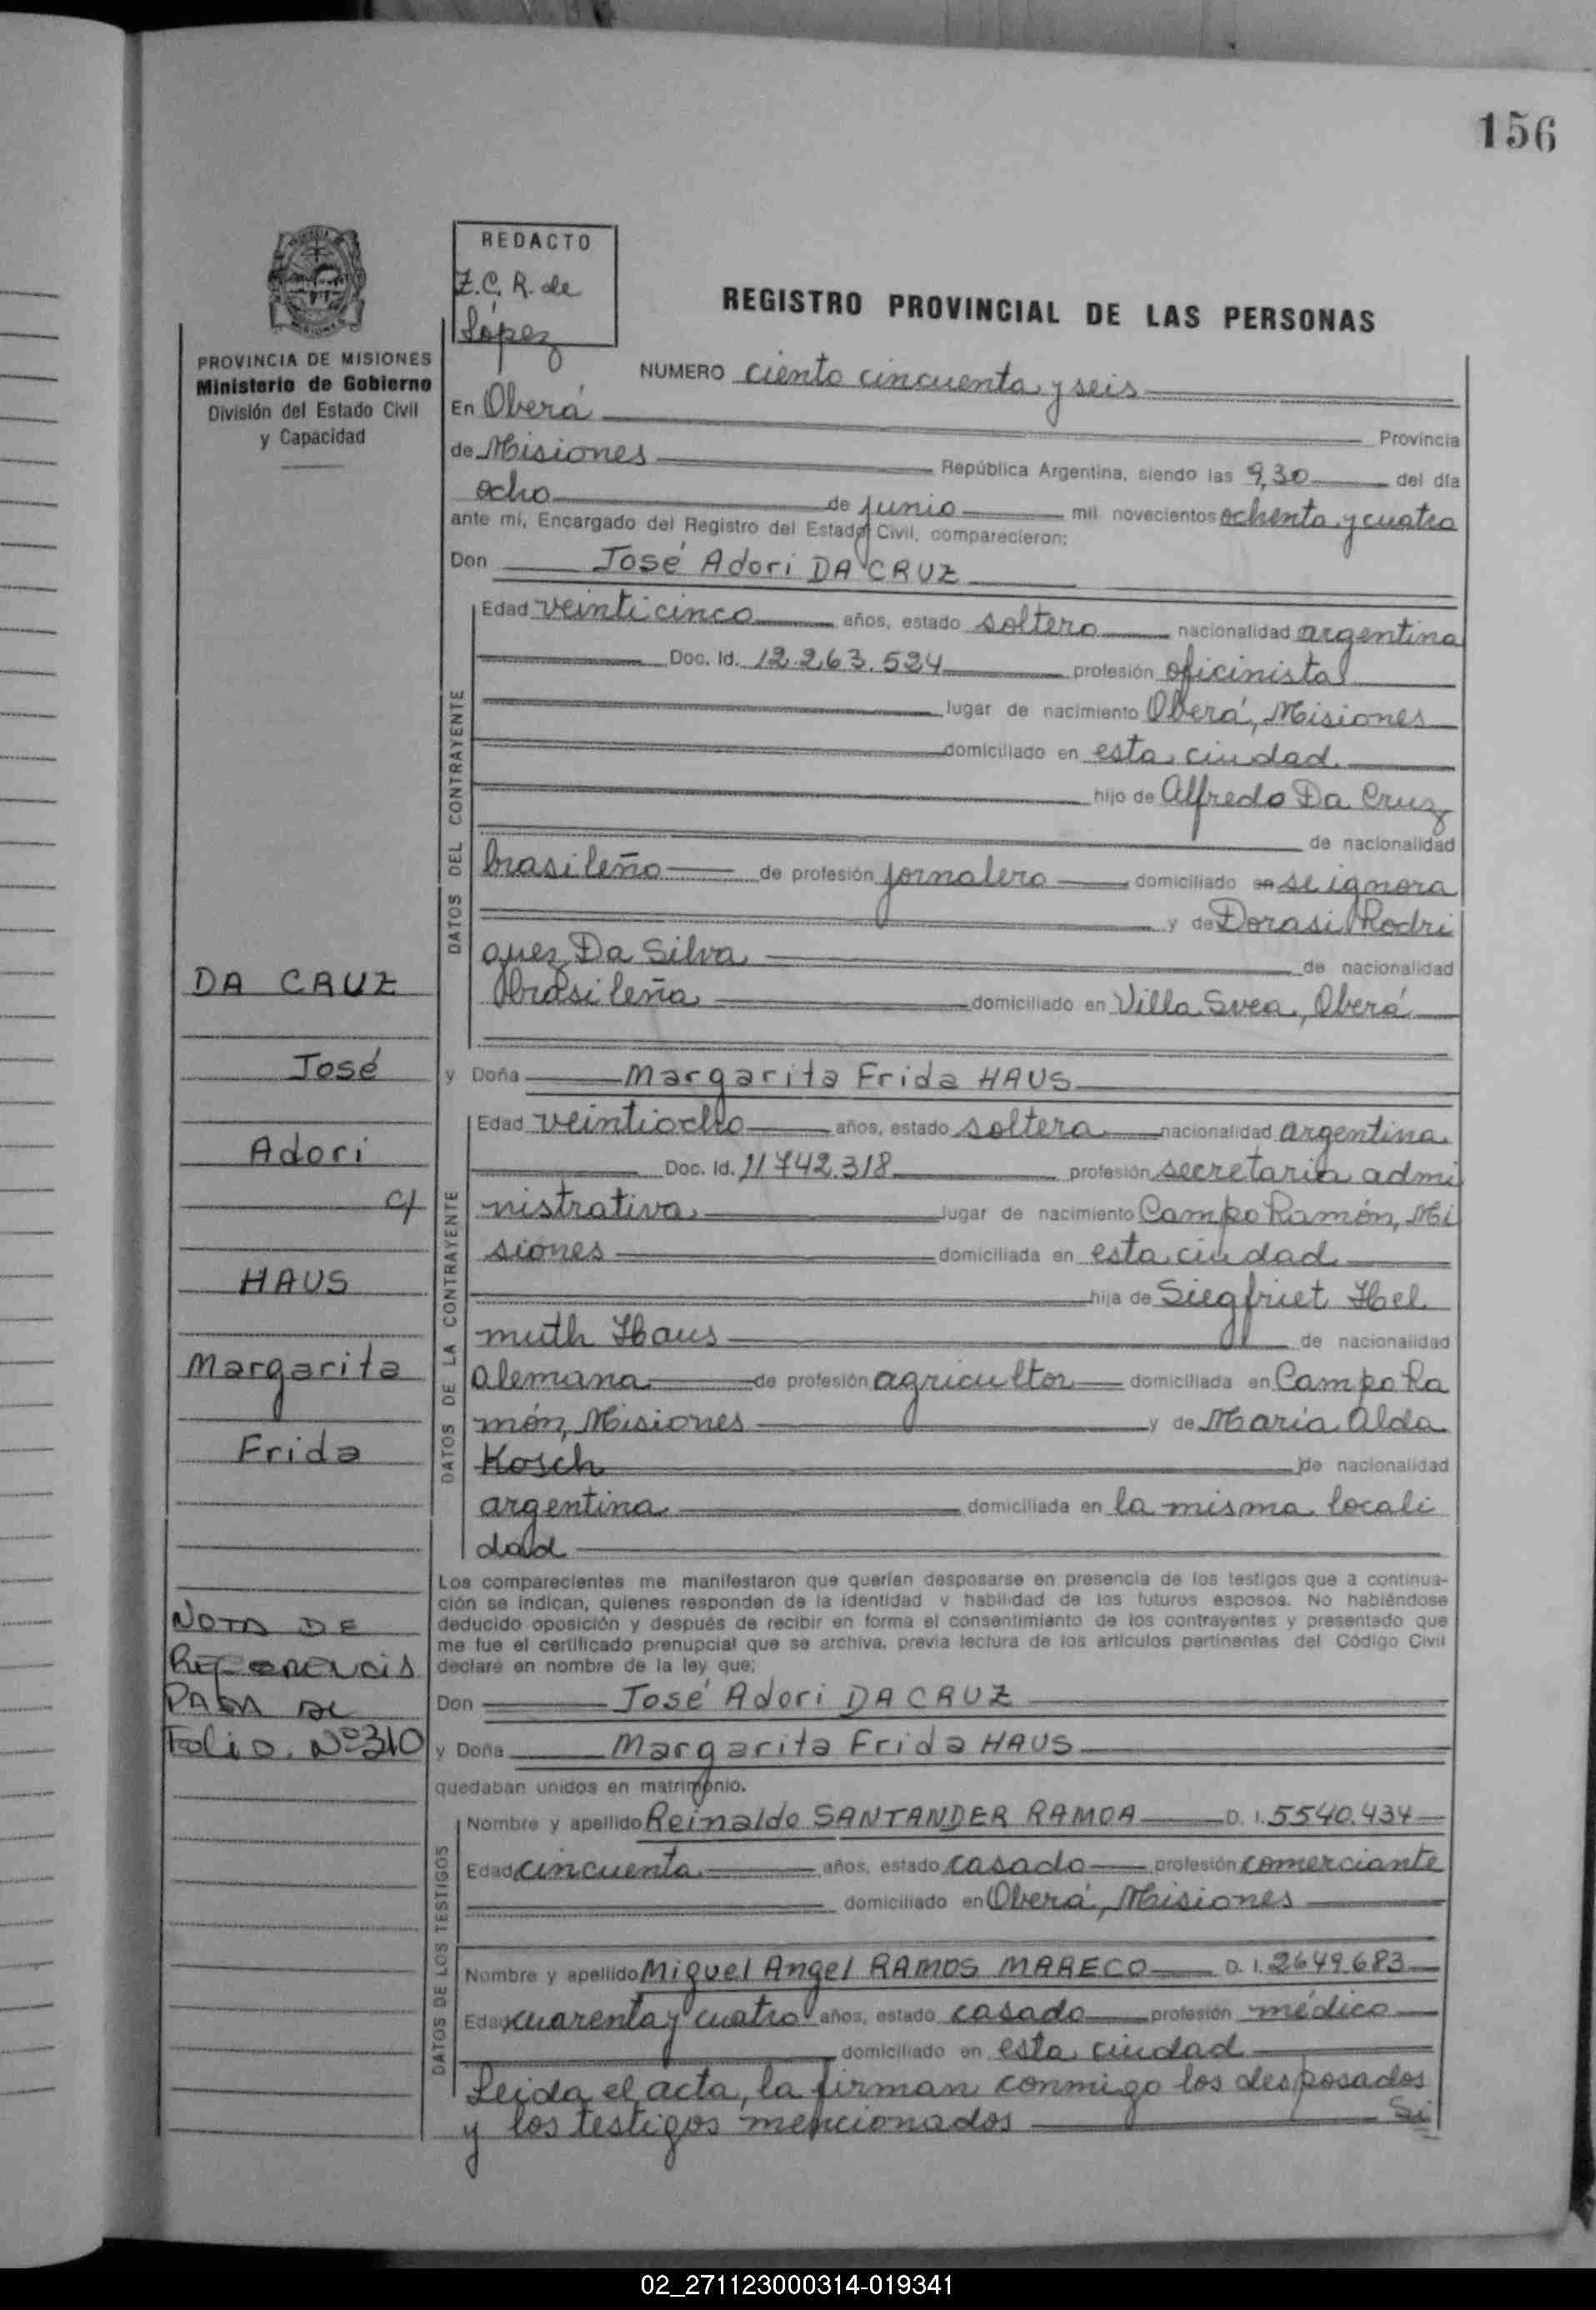 156
REDACTO
Z.C. R. de
López
REGISTRO PROVINCIAL DE LAS PERSONAS
PROVINCIA DE MISIONES
Ministerio de Gobierno
División del Estado Civil
y Capacidad
NUMERO ciento cincuenta y seis
En Oberá
Provincia
de Misiones República Argentina, siendo las 9,30 del día
ocho de junio mil novecientos ochenta y cuatro
ante mí, Encargado del Registro del Estado Civil, comparecieron:
Don José Adori DA CRUZ
DATOS DEL CONTRAYENTE
Edad veinticinco años, estado soltero nacionalidad argentina
Doc. Id. 12.263.524 profesión oficinista
lugar de nacimiento Oberá, Misiones
domiciliado en esta ciudad
hijo de Alfredo Da Cruz
de nacionalidad
brasileño de profesión jornalero domiciliado en se ignora
y de Dorasi Rodri
guez Da Silva de nacionalidad
brasileña domiciliado en Villa Svea, Oberá
DA CRUZ
José
Adori
c/
HAUS
Margarita
Frida
y Doña Margarita Frida HAUS
DATOS DE LA CONTRAYENTE
Edad veintiocho años, estado soltera nacionalidad argentina
Doc. Id. 11742.318 profesión secretaria admi
nistrativa lugar de nacimiento Campo Ramón, Mi
siones domiciliada en esta ciudad
hija de Siegfriet Hel
muth Haus de nacionalidad
alemana de profesión agricultor domiciliada en Campo Ra
món, Misiones y de María Alda
Kosch de nacionalidad
argentina domiciliada en la misma locali
dad
Los comparecientes me manifestaron que querían desposarse en presencia de los testigos que a continua-
ción se indican, quienes responden de la identidad y habilidad de los futuros esposos. No habiéndose
deducido oposición y después de recibir en forma el consentimiento de los contrayentes y presentado que
me fue el certificado prenupcial que se archiva, previa lectura de los artículos pertinentes del Código Civil
declaré en nombre de la ley que;
NOTA DE
REFERENCIA
PASA AL
Folio. Nº 310
Don José Adori DA CRUZ
y Doña Margarita Frida HAUS
quedaban unidos en matrimonio.
DATOS DE LOS TESTIGOS
Nombre y apellido Reinaldo SANTANDER RAMOA D. I. 5540.434
Edad cincuenta años, estado casado profesión comerciante
domiciliado en Oberá, Misiones
Nombre y apellido Miguel Angel RAMOS MARECO D. I. 2649683
Edad cuarenta y cuatro años, estado casado profesión médico
domiciliado en esta ciudad
Leida el acta, la firman conmigo los desposados
y los testigos mencionados Si
02_271123000314-019341